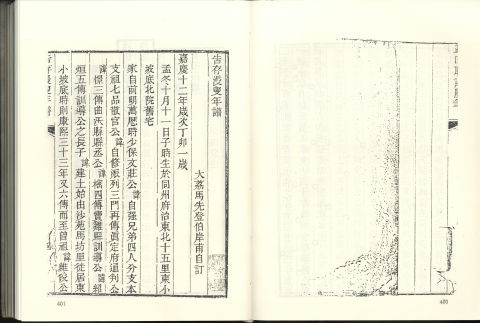 告存漫叟年譜
大荔馬先登伯岸甫自訂
嘉慶十二年歲次丁卯一歲
孟冬十月十一日子時生於同州府治東北十五里東小
坡底北院舊宅
家自前明萬曆時少保文莊公諱自強兄弟四人分支本
支祖七品散官公諱自修派列三門再傳眞定府通判公
諱 三傳曲沃縣縣丞公諱 四傳 縣訓導公諱
烜五傳訓導公之長子諱建土始由沙苑馬坊里徙居東
小坡底時則康熙三十三年又六傳而至曾祖諱維 公
401
400